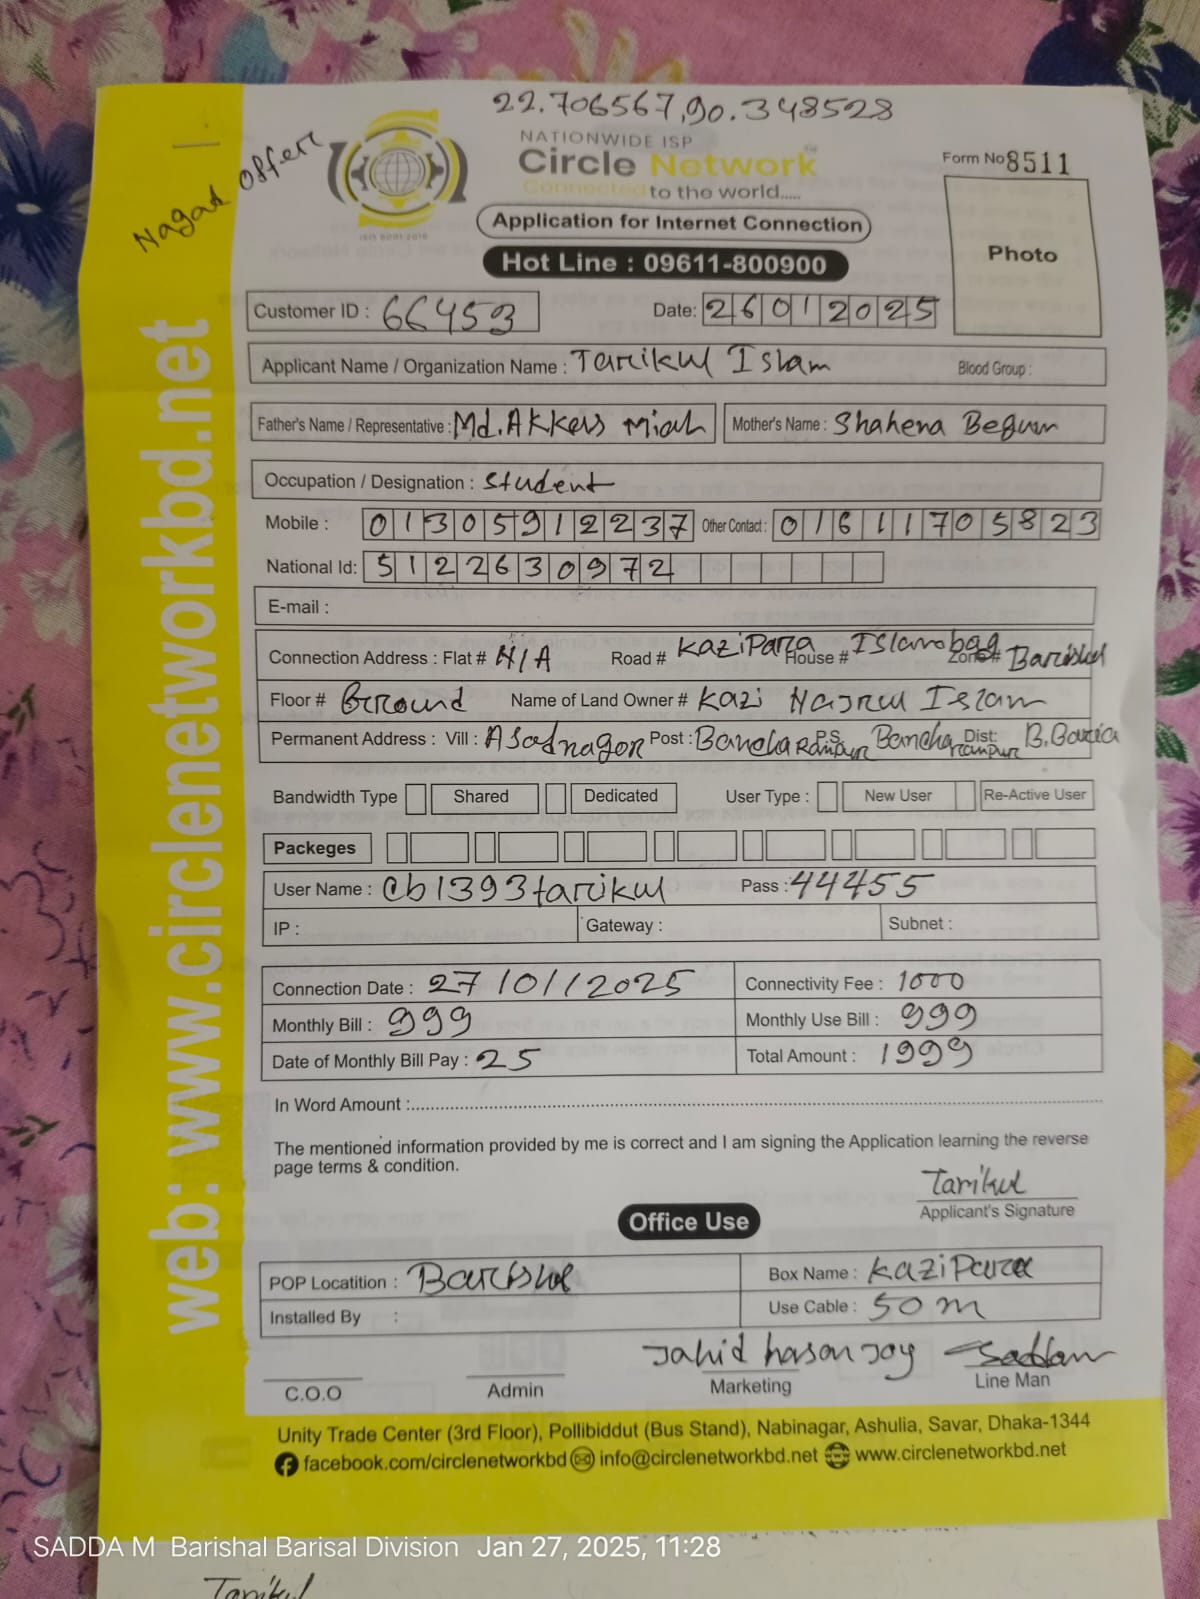 22.706567,90.348528
Nagad offer
NATIONWIDE ISP
Circle Network
Connected to the world.....
ISO 9001:2015
Form No 8511
Application for Internet Connection
Photo
Hot Line : 09611-800900
Customer ID : 66453
Date: 26012025
Applicant Name / Organization Name : Tarikul Islam
Blood Group :
Father's Name / Representative : Md. Akkas Miah
Mother's Name : Shahena Begum
Occupation / Designation : Student
Mobile : 01305912237 Other Contact : 01611705823
National Id: 5122630972
E-mail :
Connection Address : Flat # N/A Road # Kazipara House # Islambag Zone # Barishal
Floor # Ground Name of Land Owner # Kazi Nazrul Islam
Permanent Address : Vill : Asadnagor Post : Bancharampur P.S. Bancharampur Dist: B.Baria
Bandwidth Type Shared Dedicated User Type : New User Re-Active User
Packeges
User Name : cb1393tarikul Pass : 44455
IP : Gateway : Subnet :
Connection Date : 27/01/2025 Connectivity Fee : 1000
Monthly Bill : 999 Monthly Use Bill : 999
Date of Monthly Bill Pay : 25 Total Amount : 1999
In Word Amount :
The mentioned information provided by me is correct and I am signing the Application learning the reverse
page terms & condition.
Tarikul
Applicant's Signature
Office Use
POP Locatition : Barishal Box Name : Kazipara
Installed By : Use Cable : 50m
Jahid hasan Joy Saddam
C.O.O Admin Marketing Line Man
Unity Trade Center (3rd Floor), Pollibiddut (Bus Stand), Nabinagar, Ashulia, Savar, Dhaka-1344
facebook.com/circlenetworkbd info@circlenetworkbd.net www.circlenetworkbd.net
web: www.circlenetworkbd.net
SADDA M Barishal Barisal Division Jan 27, 2025, 11:28
Tarikul